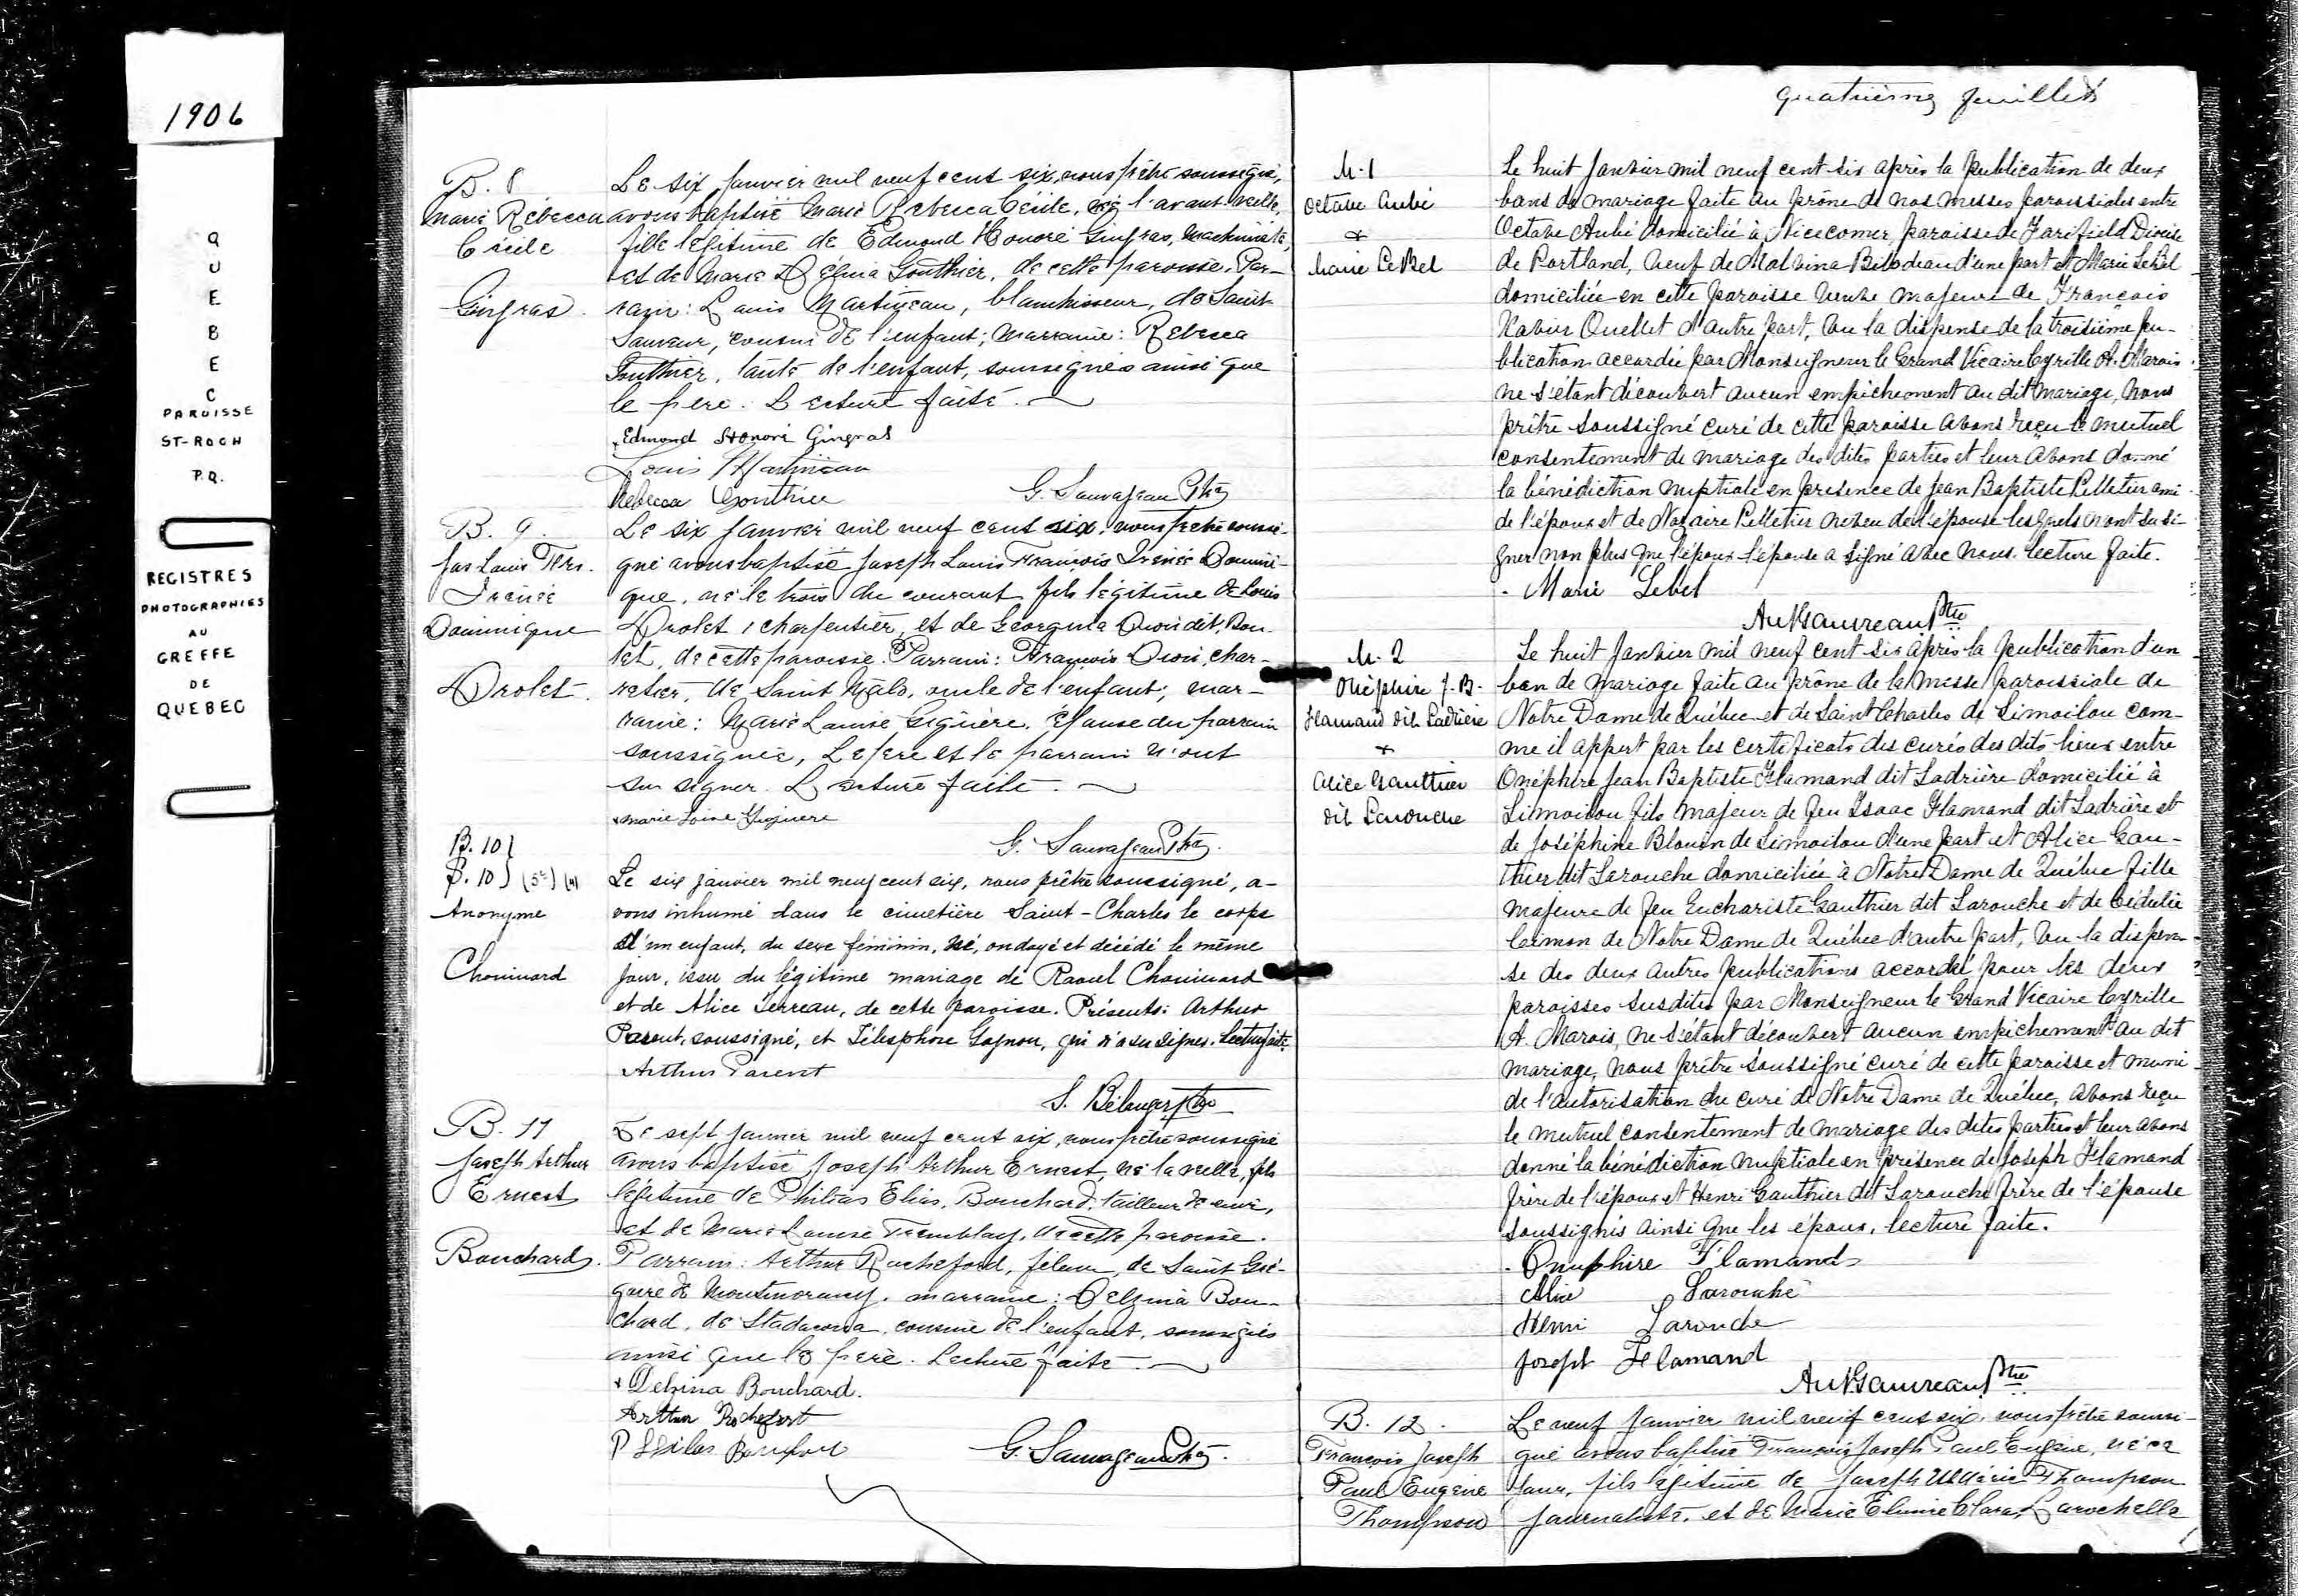 1906
QUEBEC
PAROISSE
ST-ROCH
P.Q.
REGISTRES
PHOTOGRAPHIES
AU
GREFFE
DE
QUEBEC
B. 8
Marie Rébecca
Cécile
Gingras
Le six janvier mil neuf cent six, nous prêtre soussigné,
avons baptisé Marie Rebecca Cécile, née l'avant-veille,
fille légitime de Edmond Honoré Gingras, machiniste,
et de Marie Régina Gonthier, de cette paroisse. Par-
rain: Louis Martineau, blanchisseur, de Saint
Sauveur, cousin de l'enfant; marraine: Rebecca
Gonthier, tante de l'enfant, soussignés ainsi que
le père. Lecture faite.
Edmond Honoré Gingras
Louis Martineau
Rebecca Gonthier
G. Sauvageau Ptre
B. 9
Jos Louis Frs.
Irénée
Dominique
Drolet
Le six janvier mil neuf cent six, nous prêtre soussi-
gné avons baptisé Joseph Louis François Irénée Domini-
que, né le trois du courant, fils légitime de Louis
Drolet, charpentier, et de Georgina Drouin dit
de cette paroisse. Parrain: François char-
retier, de Saint Malo, oncle de l'enfant; mar-
raine: Marie Louise Giguère, épouse du parrain
soussignée, Le père et le parrain n'ont
su signer. Lecture faite.
Marie Loise Giguere
G. Sauvageau Ptre
B. 10
S. 10
Anonyme
Chouinard
Le six janvier mil neuf cent six, nous prêtre soussigné, a-
vons inhumé dans le cimetière Saint-Charles le corps
d'un enfant, du sexe féminin, né, ondoyé et décédé le même
jour, issu du légitime mariage de Raoul Chouinard
et de Alice Terreau, de cette paroisse. Présents: Arthur
Parent, soussigné, et Télesphore Gagnon, qui n'a su signer. Lecture faite.
Arthur Parent
S. Bélanger Ptre
B. 11
Joseph Arthur
Ernest
Bouchard
Le sept janvier mil neuf cent six, nous prêtre soussigné
avons baptisé Joseph Arthur Ernest, né la veille, fils
légitime de Philias Elias Bouchard, tailleur de cuir,
et de Marie Louise Tremblay, de cette paroisse.
Parrain: Arthur Rocheford, fileur, de Saint Gré-
goire de Montmorency, marraine: Delzina Bou-
chard, de Stadacona, cousine de l'enfant, soussignés
ainsi que le père. Lecture faite.
Delzina Bouchard.
Arthur Rochefort
G. Sauvageau Ptre.
quatrième feuillet
M. 1
Octave Aubé
&
Marie LeBel
Le huit Janvier mil neuf cent six après la publication de deux
bans de mariage faite au prône de nos messes paroissiales entre
Octave Aubé domicilié à paroisse de Fairfield Diocèse
de Portland, veuf de Malvina Bilodeau d'une part et Marie LeBel
domiciliée en cette paroisse veuve majeure de François
Xavier Ouellet d'autre part, vu la dispense de la troisième pu-
blication accordée par Monseigneur le Grand Vicaire Cyrille A. Marois
ne s'étant découvert aucun empêchement au dit mariage, nous
prêtre soussigné curé de cette paroisse avons reçu le mutuel
consentement de mariage des dites parties et leur avons donné
la bénédiction nuptiale en présence de Jean Baptiste Pelletier ami
de l'époux et de Nazaire Pelletier neveu de l'épouse lesquels n'ont su si-
gner non plus que l'époux l'épouse a signé avec nous. Lecture faite.
Marie Lebel
Ant Gauvreau Ptre
M. 2
Onéphire J. B.
Flamand dit Ladrière
&
Alice Gauthier
dit Larouche
Le huit Janvier mil neuf cent six après la publication d'un
ban de mariage faite au prône de la messe paroissiale de
Notre Dame de Québec et de Saint Charles de Limoilou com-
me il appert par les certificats des curés des dits lieux entre
Onéphire Jean Baptiste Flamand dit Ladrière domicilié à
Limoilou fils majeur de feu Isaac Flamand dit Ladrière et
de Joséphine Blouin de Limoilou d'une part et Alice Gau-
thier dit Larouche domiciliée à Notre Dame de Québec fille
majeure de feu Euchariste Gauthier dit Larouche et de Cédulie
de Notre Dame de Québec d'autre part, vu la dispen-
se des deux autres publications accordé pour les deux
paroisses susdites par Monseigneur le Grand Vicaire Cyrille
A. Marois, ne s'étant découvert aucun empêchement au dit
mariage, nous prêtre soussigné curé de cette paroisse et muni
de l'autorisation du curé de Notre Dame de Québec, avons reçu
le mutuel consentement de mariage des dites parties et leur avons
donné la bénédiction nuptiale en présence de Joseph Flamand
frère de l'époux et Henri Gauthier dit Larouche frère de l'épouse
soussignés ainsi que les époux, lecture faite.
Onephire Flamand
Alice Larouche
Henri Larouche
Joseph Flamand
Ant Gauvreau Ptre
B. 12.
François Joseph
Paul Eugène
Thompson
Le neuf Janvier mil neuf cent six, nous prêtre soussi-
gné avons baptisé François Joseph Paul Eugène, né ce
jour, fils légitime de Joseph Uldéric Thompson
journaliste, et de Marie Elmire Clara Larochelle